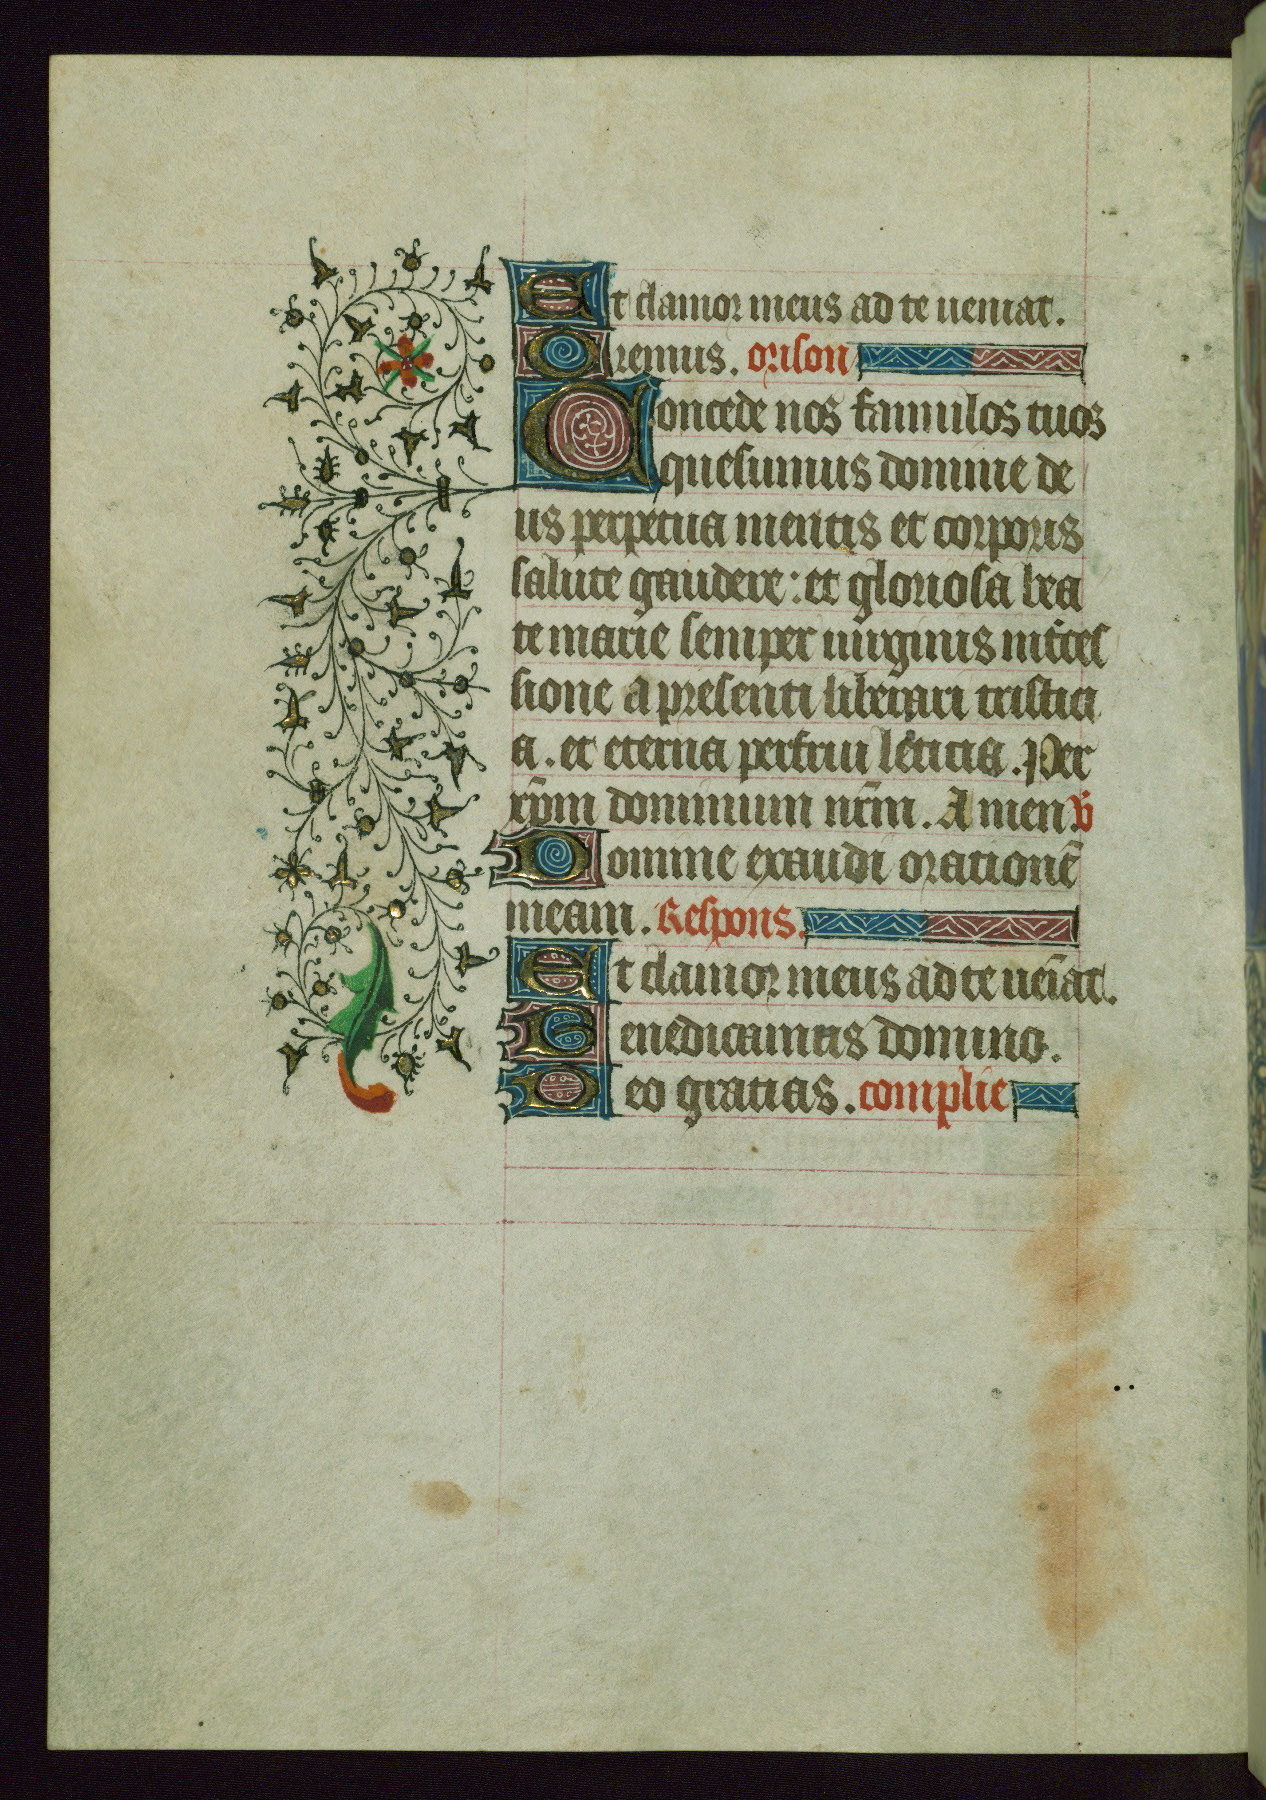 Et clamor meus ad te ueniat.
Oremus. orison
Concede nos famulos tuos
quesumus domine de
us perpetua mentis et corporis
salute gaudere: et gloriosa bea
te marie semper uirginis int̄ces
sione a presenti liberari tristici
a. et eterna perfrui leticia. Per
xp̄m dominum nr̄m. Amen v̄
Domine exaudi orationē
meam. Respons.
Et clamor meus ad te uēiat.
Benedicamus domino.
Deo gratias. complie